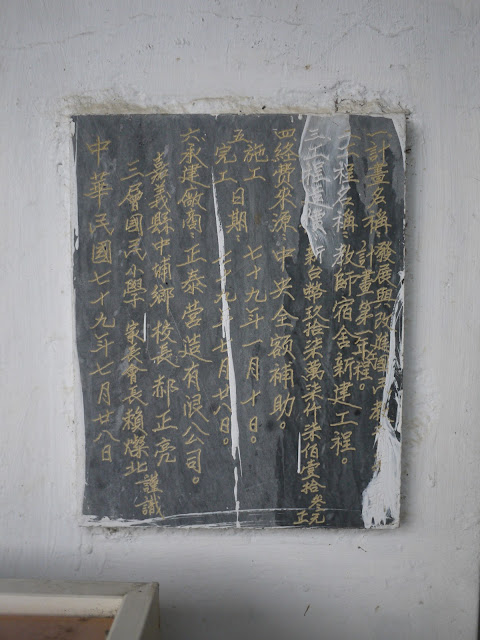 一計畫名稱:發展與改進國民教育
計畫第一年程。
二工程名稱:教師宿舍新建工程。
三工程造價:新台幣玖拾柒萬柒仟柒佰壹拾叁元正
四經費來源:中央全額補助。
五施工日期:七十九年一月十日。
完工日期:七十九年七月廿八日。
六承建廠商:正泰營造有限公司。
嘉義縣中埔鄉 校長郝正亮
三層國民小學 家長會長賴燦北 謹識
中華民國七十九年七月廿八日